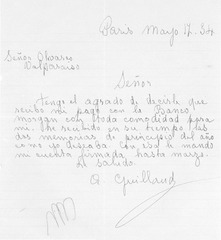 Paris Mayo 17. 34
Señor Alvarez
Valparaiso
Señor
Tengo el agrado de decirle que
recibo mi pago con la Banco
Morgan con toda comodidad para
mi. He recibido en su tiempo las
dos memorias de principio del año
como yo deseaba. Con esa le mando
mi cuenta firmada hasta marzo.
Le Saluda
A Guillaud